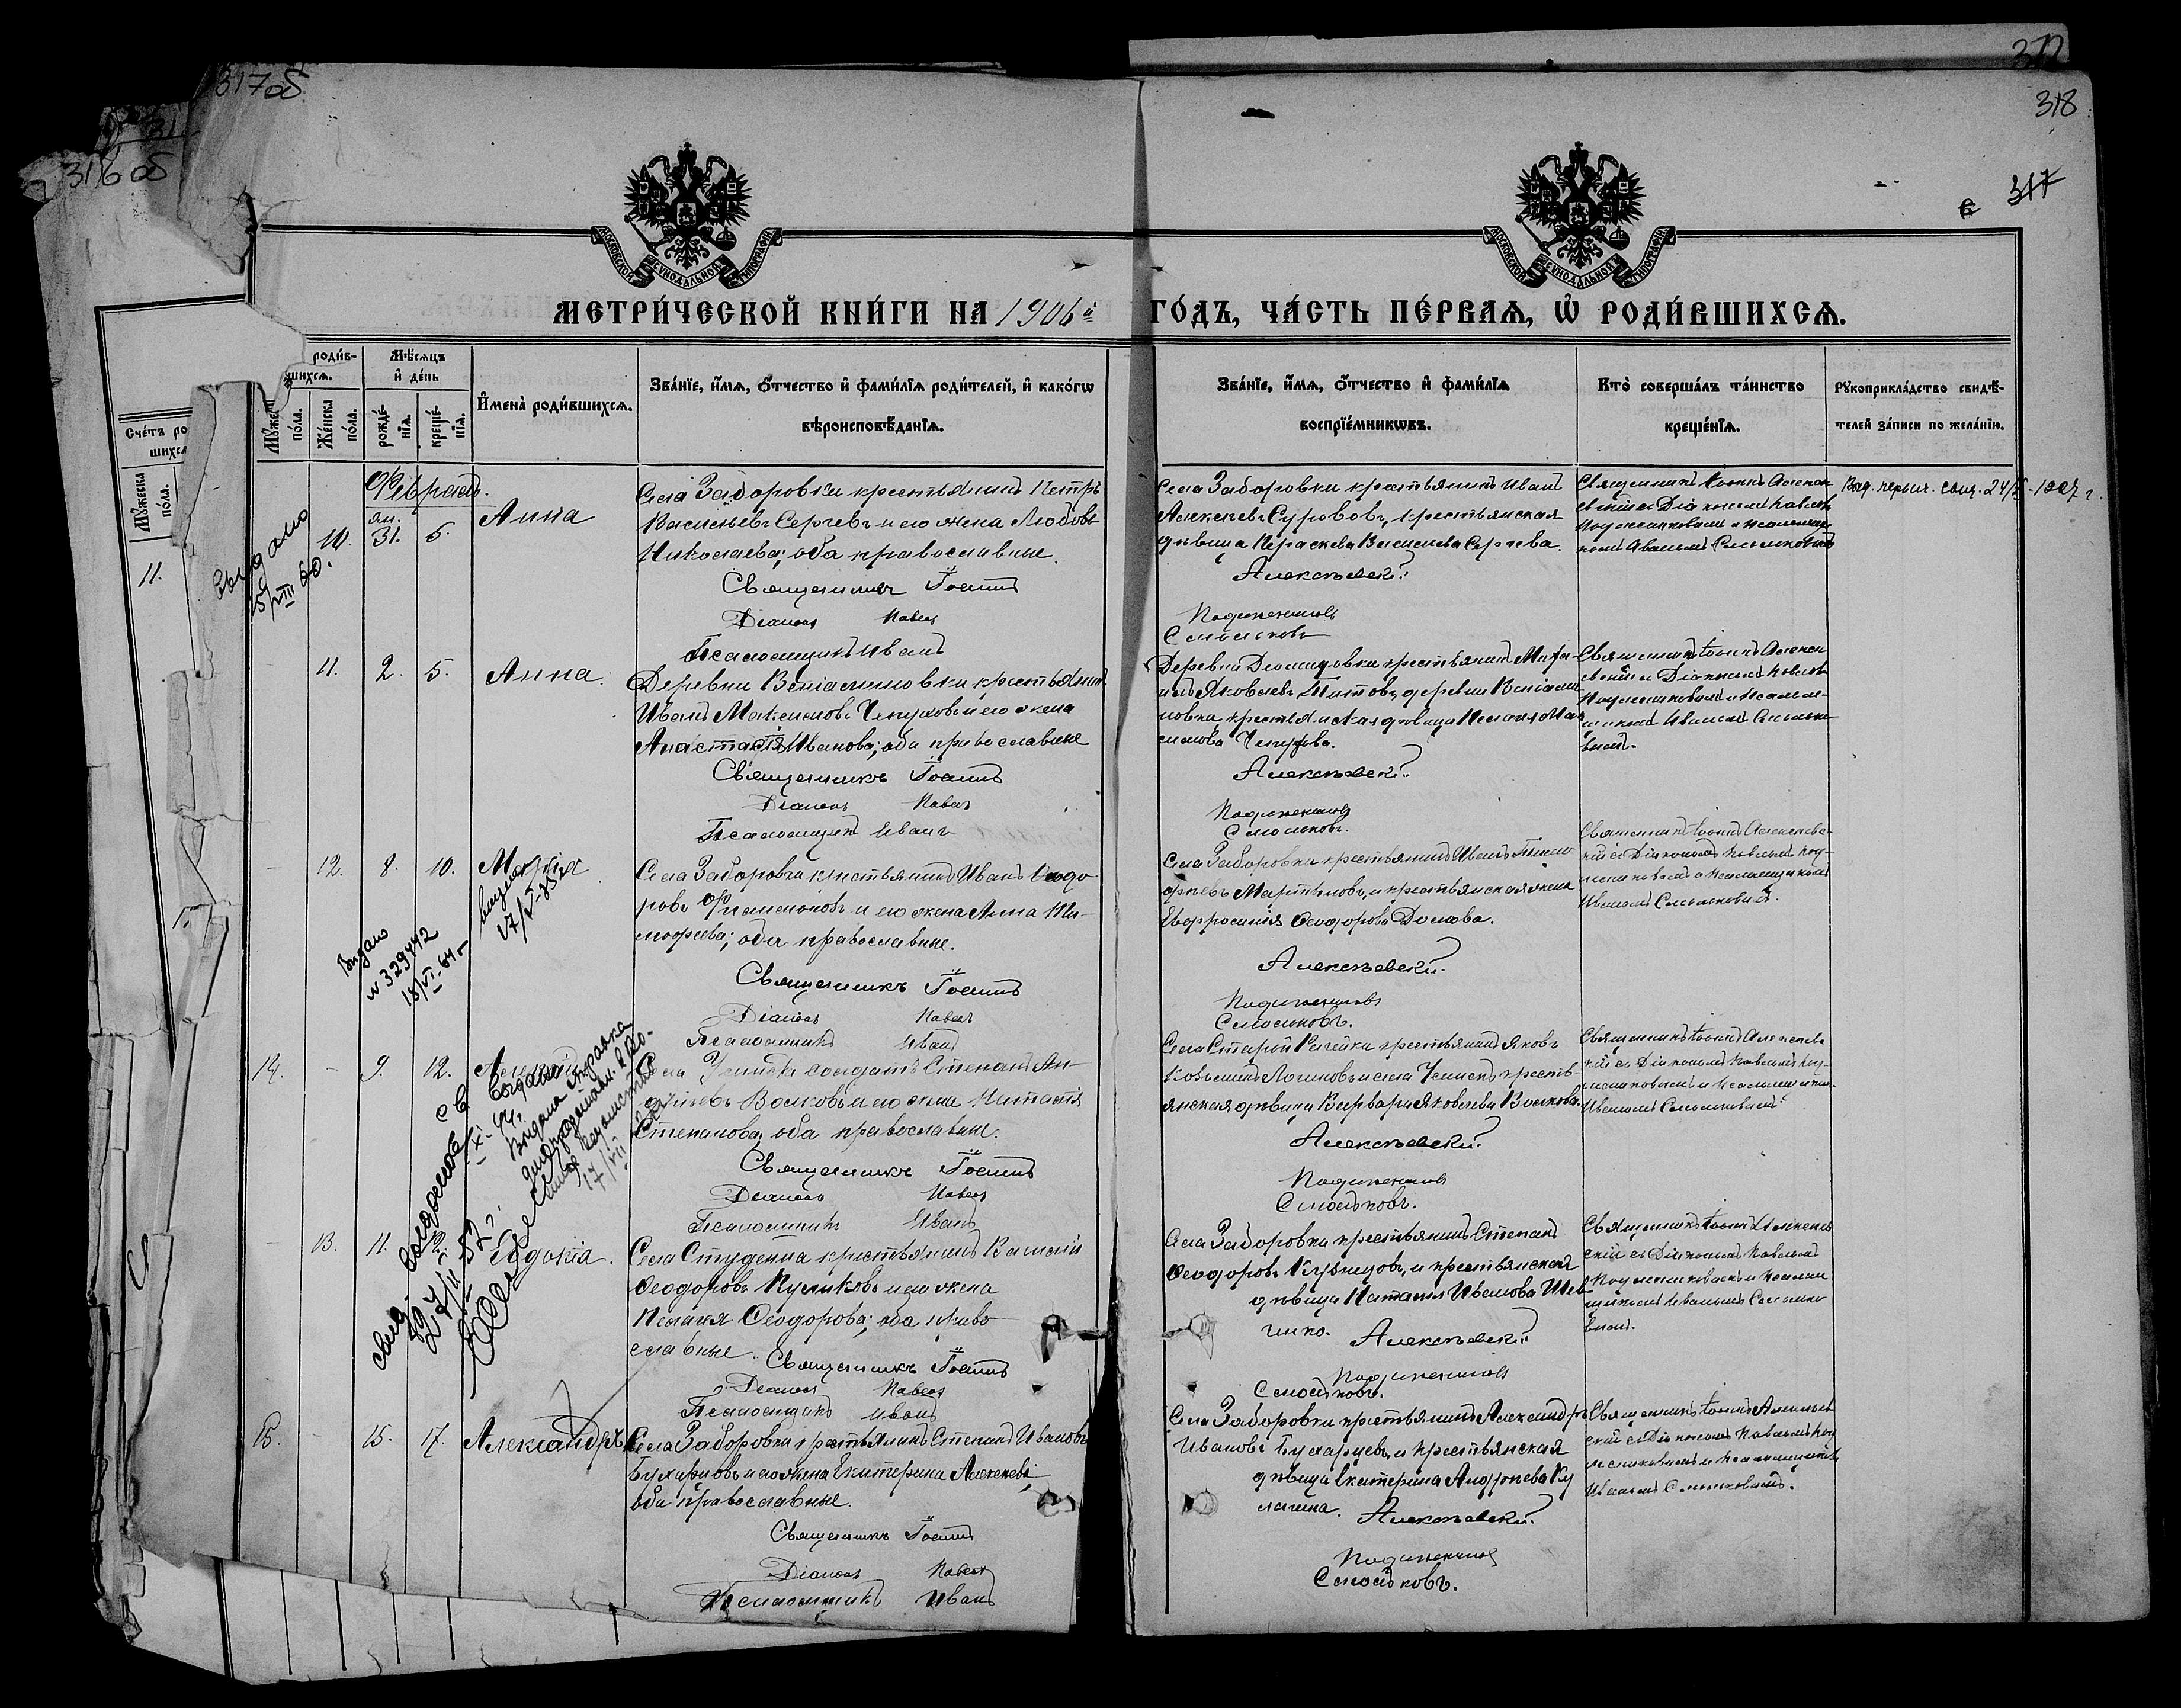 317об
316 об
312
318
317
МОСКОВСКОЙ СѴНОДАЛЬНОЙ ТИПОГРАФІИ
МОСКОВСКОЙ СѴНОДАЛЬНОЙ ТИПОГРАФІИ
МЕТРИ́ЧЕСКОЙ КНИ́ГИ НА 1906й ГО́ДЪ, ЧА́СТЬ ПЕ́РВАЯ, Ѽ РОДИ́ВШИХСЯ.
Сче́тъ ро
шихся
Мꙋ́жеска
по́ла.
11.
роди́в-
шихся.
Мꙋ́же
по́ла.
Же́нска
по́ла.
Мѣ́сяцъ
и҆ де́нь
рожде́-
нїя.
креще́-
нїя.
И҆мена̀ роди́вшихся.
Зва́нїе, и҆́мя, ѻ҆́тчество и҆ фами́лїя роди́телей, и҆ како́гѡ
вѣроисповѣ́данїя.
Зва́нїе, и҆́мя, ѻ҆́тчество и҆ фами́лїя
воспрїе́мникѡвъ.
Кто̀ соверша́лъ та́инство
креще́нїя.
Рꙋкоприкла́дство свидѣ́-
телей за́писи по жела́нїю.
Февраль.
10.
Ян.
31.
5.
Анна
Села Заборовки крестьянинъ Петръ
Васильевъ Сергѣевъ и его жена Любовь
Николаева; оба православные.
Священникъ Іоаннъ
Діаконъ Павелъ
Псаломщикъ Иванъ
Села Заборовки крестьянинъ Иванъ
Алексѣевъ Сурововъ, крестьянская
дѣвица Параскева Васильева Сергѣева.
Алексѣевскій
Подлѣсниковъ
Смольковъ
Священникъ Іоаннъ Алексѣ-
евскій съ Діакономъ Павломъ
Подлѣсниковымъ и Псаломщи-
комъ Иваномъ Смольковымъ
Выд. 24/ 1927 г.
Выдано
VIII 60.
11.
2.
5.
Анна.
Деревни Веніаминовки крестьянинъ
Иванъ Максимовъ Чепуховъ и его жена
Анастасія Иванова; оба православные
Священникъ Іоаннъ
Діаконъ Павелъ
Псаломщикъ Иванъ
Деревни Деомидовки крестьянинъ Миха-
илъ Яковлевъ Титовъ, деревни Веніами-
новки крестьянская дѣвица Пелагія Мак-
симова Чепухова.
Алексѣевскій
Подлѣсниковъ
Смольковъ.
Священникъ Іоаннъ Алексѣ-
евскій съ Діакономъ Павломъ
Подлѣсниковымъ и Псалом-
щикомъ Иваномъ Смолько-
вымъ.
12.
8.
10.
Марія
17/V-35
Выдано
№ 329442
18/VI-61
Села Заборовки крестьянинъ Иванъ Ѳеодо-
ровъ и его жена Анна Ти-
мофеева; оба православные.
Священникъ Іоаннъ
Діаконъ Павелъ
Псаломщикъ Иванъ
Села Заборовки крестьянинъ Иванъ
Мартыновъ, и крестьянская жена
Евфросинія Ѳеодорова
Алексѣевскій.
Подлѣсниковъ
Смольковъ.
Священникъ Іоаннъ Алексѣев-
скій съ Діакономъ Павломъ Под-
лѣсниковымъ и Псаломщикомъ
Иваномъ Смольковымъ.
14.
9.
12.
Села Усинска солдатъ Степанъ Ан-
Волковъ и его жена
Степанова; оба православные.
Священникъ Іоаннъ
Діаконъ Павелъ
Псаломщикъ Иванъ
Села Старой Рачейки крестьянинъ Яковъ
Козьминъ Логиновъ и села Усинска кресть-
янская дѣвица Варвара Яковлева Волкова.
Алексѣевскій
Подлѣсниковъ
Смольковъ.
Священникъ Іоаннъ Алексѣев-
скій съ Діакономъ Павломъ Под-
лѣсниковымъ и Псаломщиком
Иваномъ Смольковымъ
Выдана справка
17/VII
13.
11.
12.
Евдокія.
Села Студенца крестьянинъ Василій
Ѳеодоровъ Куликовъ и его жена
Пелагія Ѳеодорова; оба право-
славные.
Священникъ Іоаннъ
Діаконъ Павелъ
Псаломщикъ Иванъ
Села Заборовки крестьянинъ Степанъ
Ѳеодоровъ Кузнецовъ, и крестьянская
дѣвица Наталія Иванова Шев-
ченко.
Алексѣевскій
Подлѣсниковъ
Смольковъ.
Священникъ Іоаннъ Алексѣев-
скій съ Діакономъ Павломъ
Подлѣсниковымъ и Псалом-
щикомъ Иваномъ Смолько-
вымъ.
15.
15.
17.
Александръ
Села Заборовки крестьянинъ Степанъ Ивановъ
Бухарцовъ и его жена Екатерина Алексѣева;
оба православные.
Священникъ Іоаннъ
Діаконъ Павелъ
Псаломщикъ Иванъ
Села Заборовки крестьянинъ Александръ
Ивановъ Бухарцевъ, и крестьянская
дѣвица Екатерина Андреева Ку-
лагина.
Алексѣевскій.
Подлѣсниковъ
Смольковъ.
Священникъ Іоаннъ Алексѣев-
скій съ Діакономъ Павломъ Под-
лѣсниковымъ и Псаломщикомъ
Иваномъ Смольковымъ.